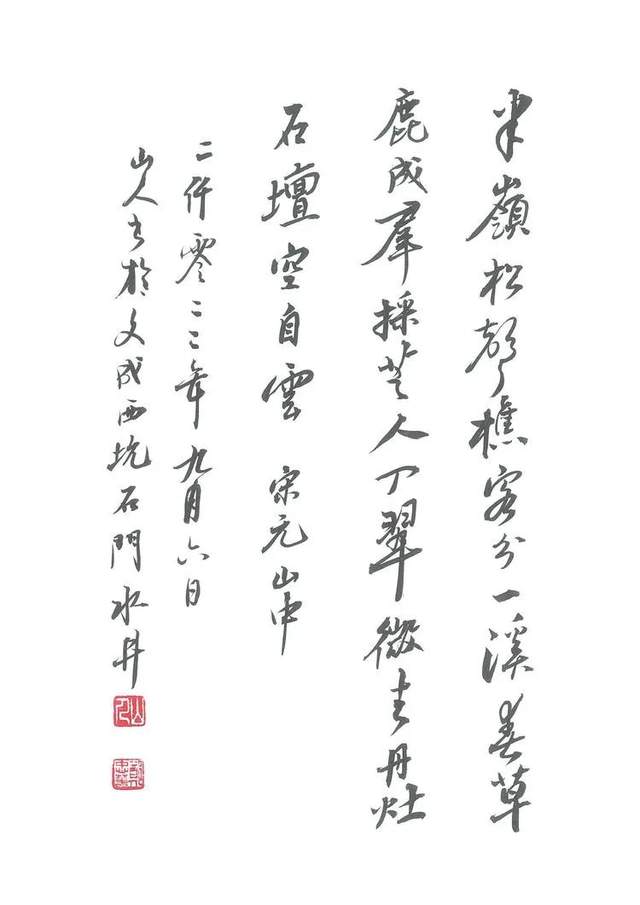 半嶺松聲樵客分一溪春草
鹿成羣採芝人入翠微去丹灶
石壇空自雲 宋元山中
二仟零二二年九月六日
山人書於文成西坑石門水井